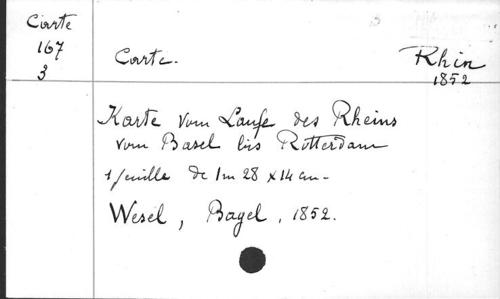 Carte
167
3
Carte.
Rhin
1852
Karte vom Laufe des Rheins
vom Basel bis Rotterdam
1 feuille de 1m 28 x 14 cm -
Wesel, Bagel, 1852.